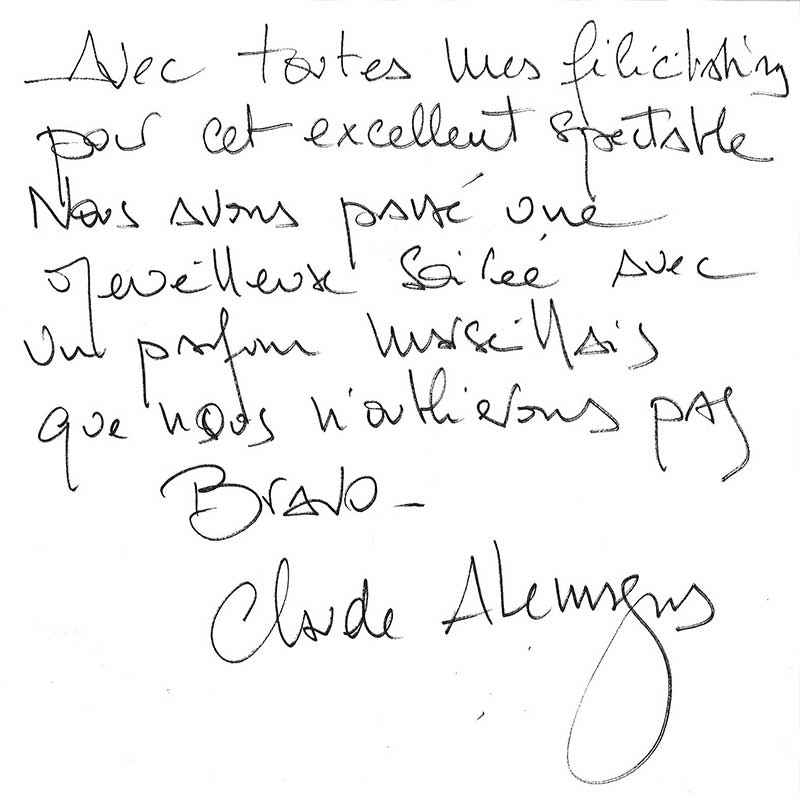 Avec toutes mes félicitations
pour cet excellent spectacle
Nous avons passé une
merveilleuse soirée avec
un parfum marseillais
que nous n'oublierons pas
Bravo -
Claude